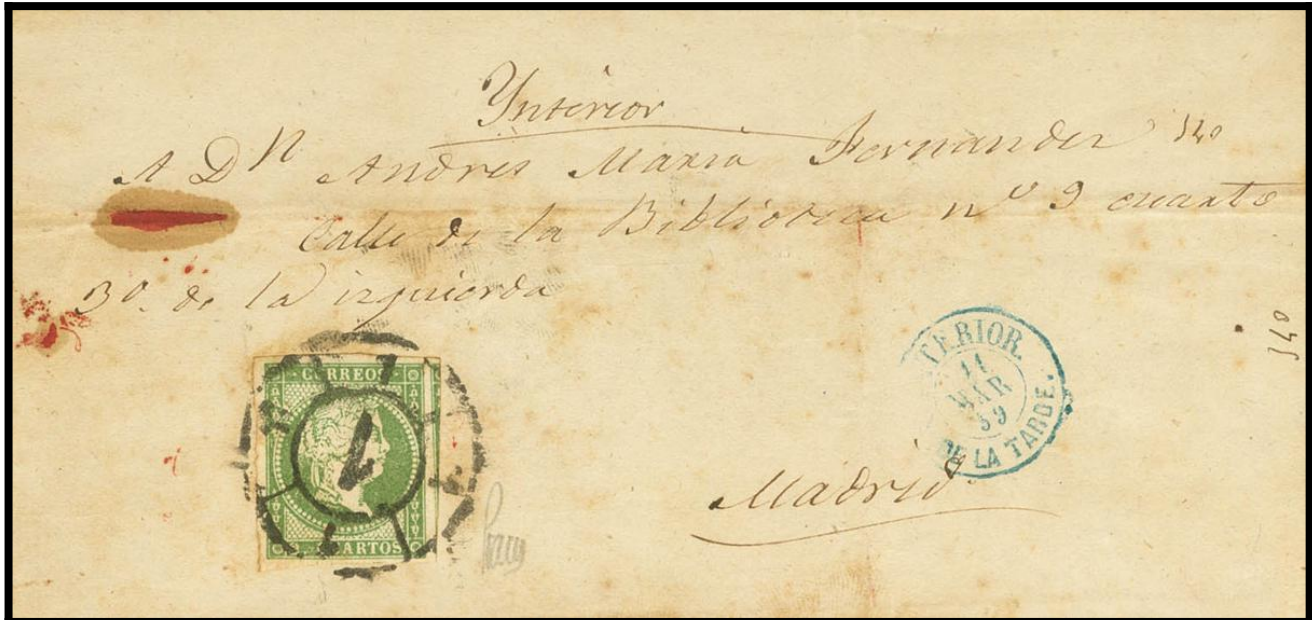 Ynterior
A Dn Andres Maria Fernandez
Calle de la Biblioteca nº 9 cuarto
3º de la izquierda
CORREOS
1
CUARTOS
TERIOR.
11
MAR
59
DE LA TARDE.
Madrid